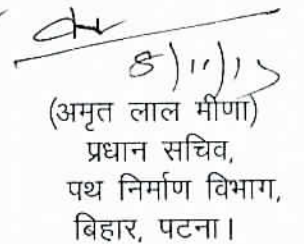 8/11/17
(अमृत लाल मीणा)
प्रधान सचिव,
पथ निर्माण विभाग,
बिहार, पटना।